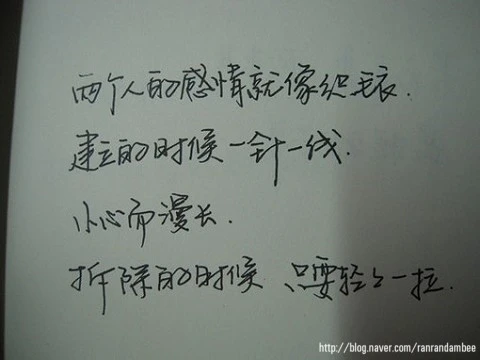 两个人的感情就像织毛衣.
建立的时候一针一线.
小心而漫长.
拆除的时候 只要轻轻一拉.
http://blog.naver.com/ranrandambee